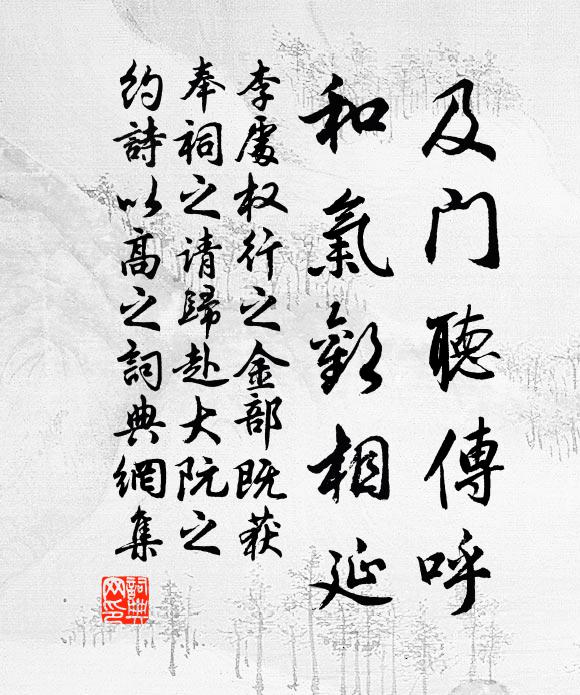 及门聽傳呼
和氣歡相延
李處权行之金部既获
奉祠之请歸赴大阮之
约詩以高之詞典網集
詞典網印